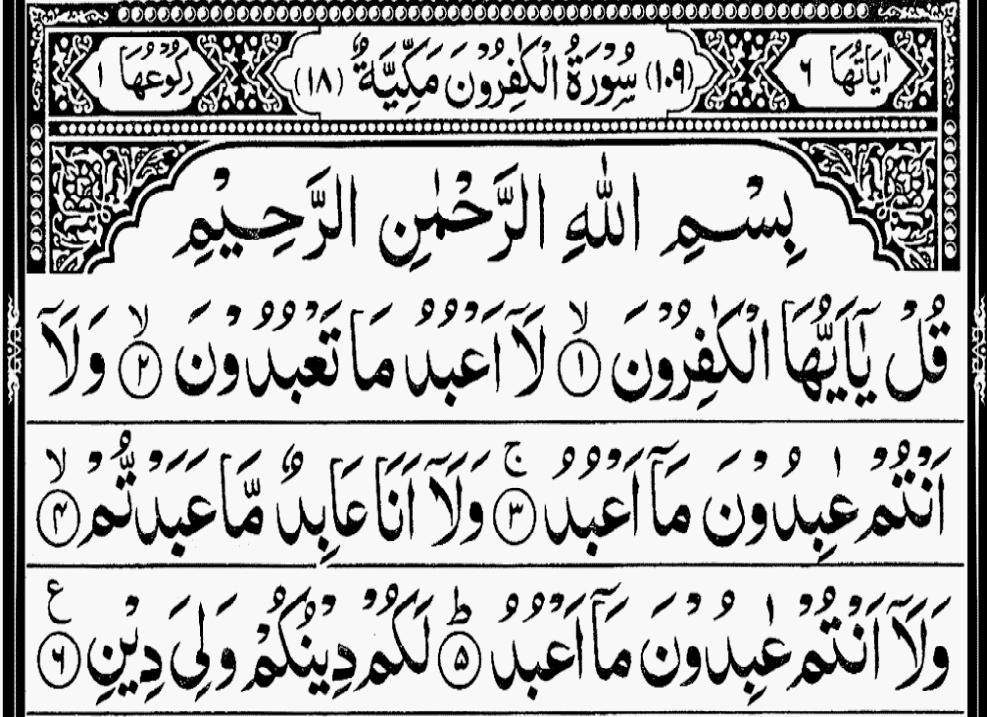 اٰيَاتُهَا ٦ (١٠٩) سُوْرَةُ الْكٰفِرُوْنَ مَكِّيَّةٌ (١٨) رُكُوْعُهَا ١
بِسْمِ اللّٰهِ الرَّحْمٰنِ الرَّحِيْمِ
قُلْ يٰۤاَيُّهَا الْكٰفِرُوْنَ ۙ﴿۱﴾ لَاۤ اَعْبُدُ مَا تَعْبُدُوْنَ ۙ﴿۲﴾ وَلَاۤ
اَنْتُمْ عٰبِدُوْنَ مَاۤ اَعْبُدُ ۚ﴿۳﴾ وَلَاۤ اَنَا عَابِدٌ مَّا عَبَدْتُّمْ ۙ﴿۴﴾
وَلَاۤ اَنْتُمْ عٰبِدُوْنَ مَاۤ اَعْبُدُ ؕ﴿۵﴾ لَكُمْ دِيْنُكُمْ وَلِيَ دِيْنِ ﴿۶﴾ ع